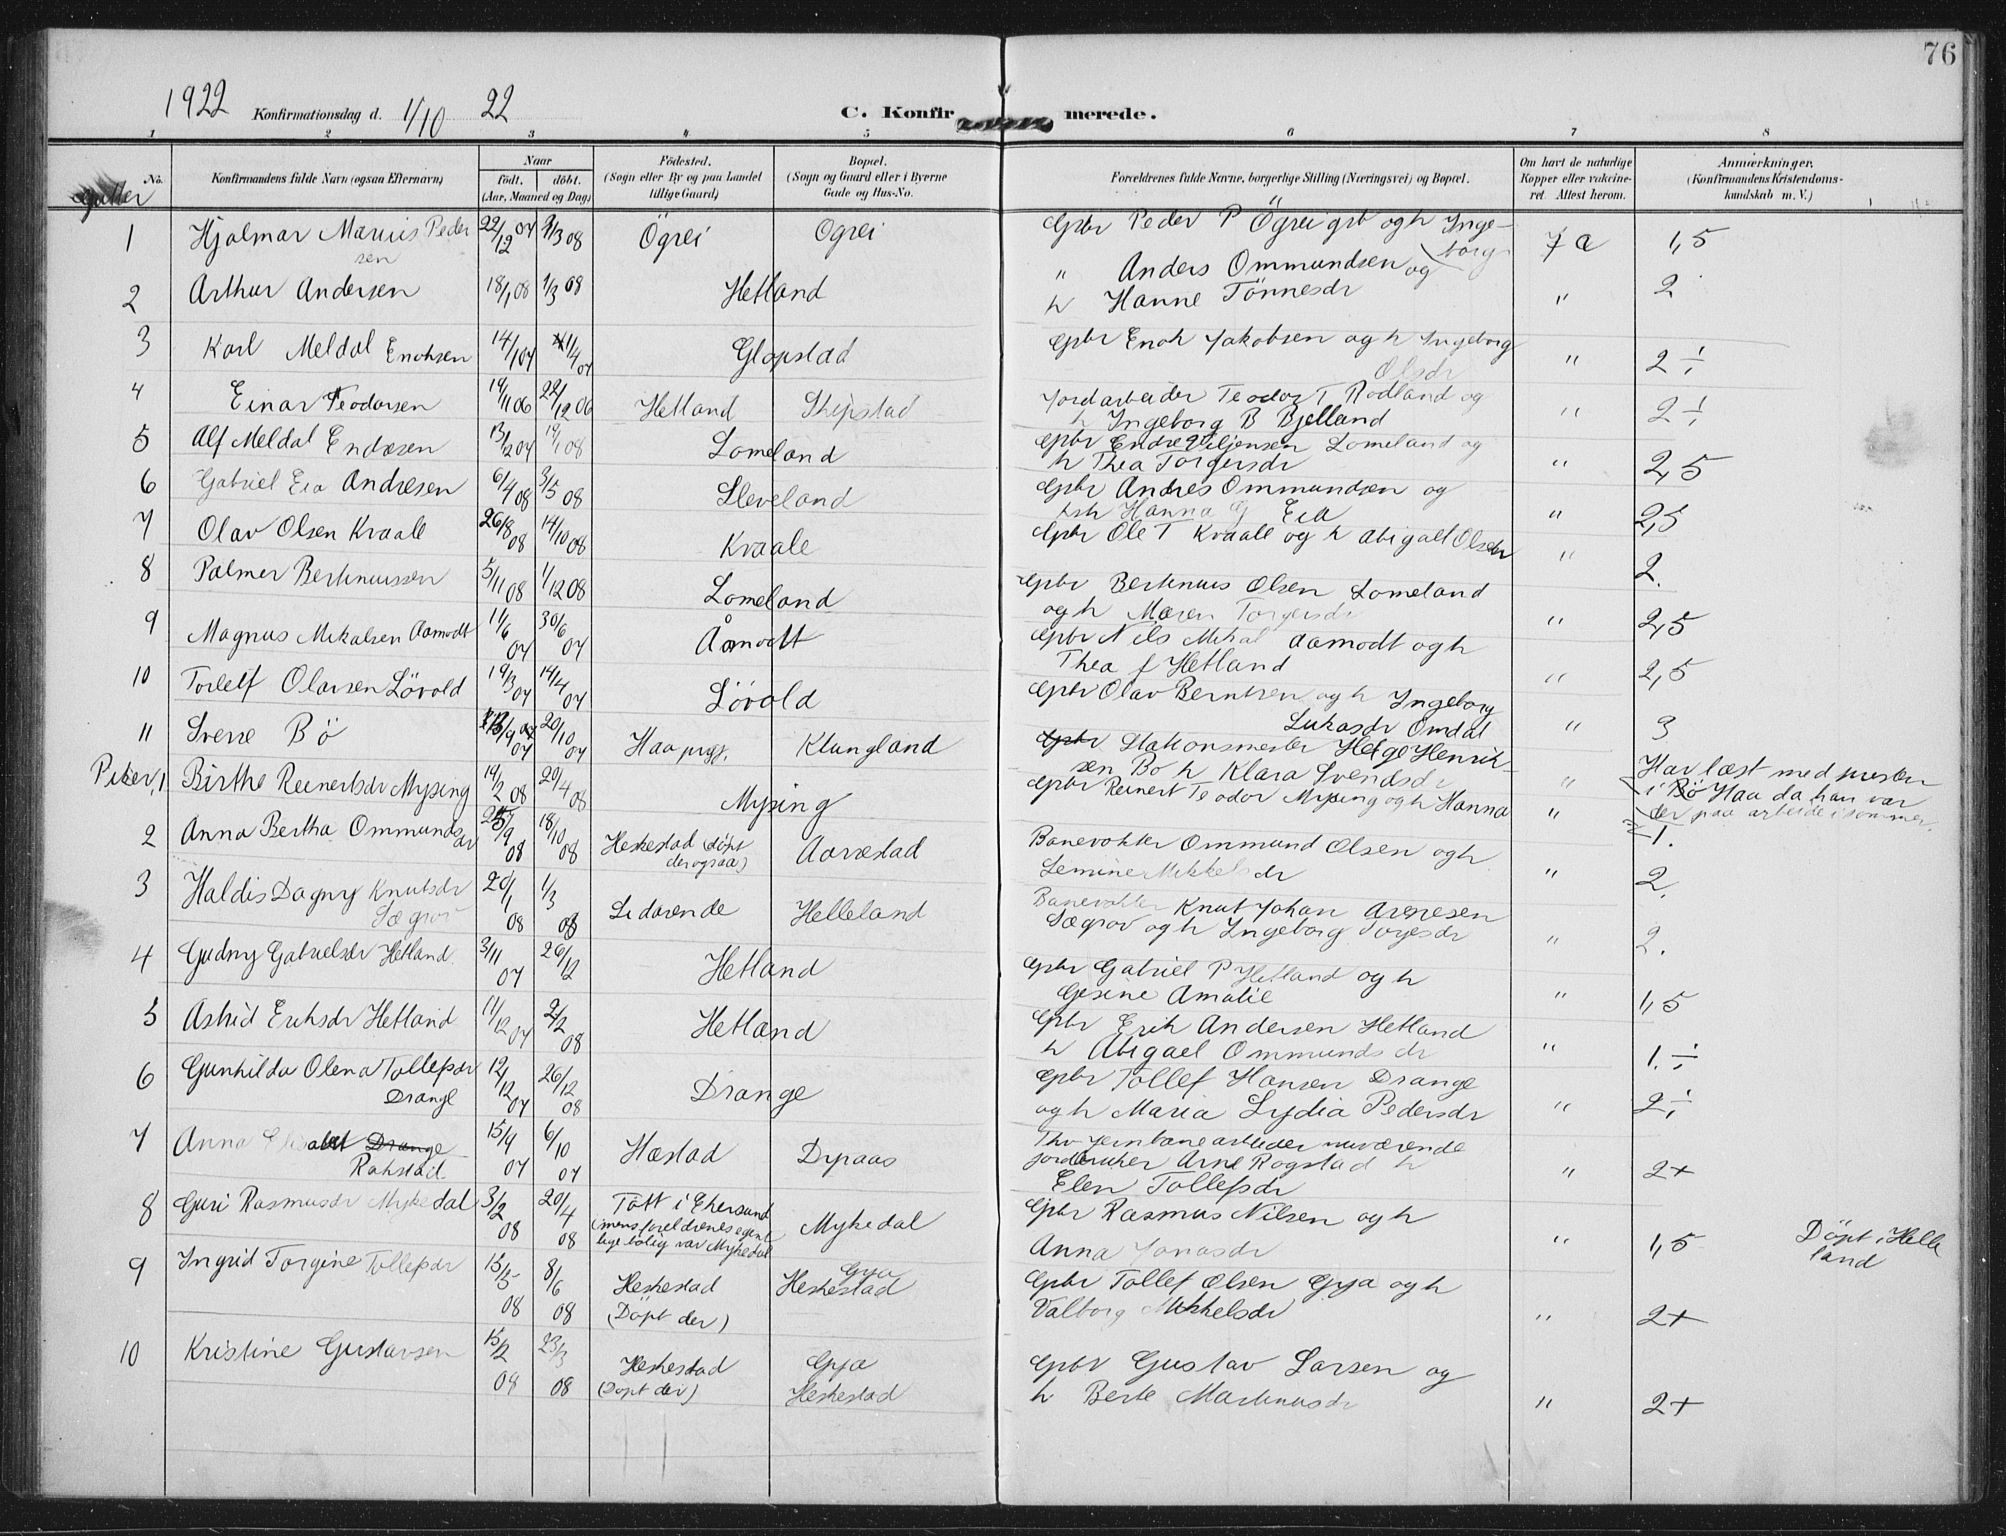 76
1922 Konfirmationsdag d. 1/10 22 C. Konfir merede.
1 2 3 4 5 6 7 8
No. Konfirmandens fulde Navn (ogsaa Efternavn) Naar født. døbt. (Aar, Maaned og Dag) Fødested. (Sogn eller By og paa Landet tillige Gaard) Bopæl. (Sogn og Gaard eller i Byerne Gade og Hus-No. Forældrenes fulde Navne, borgerlige Stilling (Næringsvei) og Bopæl. Om havt de naturlige Kopper eller vakcineret. Attest herom. Anmærkninger. (Konfirmandens Kristendomskundskab m. V.)
Gutter
1 Hjalmar Marius Pedersen 22/12 07 Ögrei Ogrei Gbr Peder P Ögrei og h Ingeborg 1,5
2 Arthur Andersen 18/1 08 1/3 08 Hetland " Anders Ommundsen og
h Hanne Tönnesdr " 2
3 Karl Meldal Enoksen 14/1 07 1/4 07 Glopstad Gbr Enok Jakobsen og h Ingeborg
Olsdr " 2 ÷
4 Einar Teodorsen 19/11 06 22/12 06 Hetland Skipstad Jordarbeider Teodor T Rodland og
h Ingeborg B Bjelland " 2 ÷
5 Alf Meldal Endresen Lomeland Gbr Endre Lomeland og
h Thea Torgersdr " 2,5
6 Gabriel Eia Andresen 6/4 08 3/5 08 Sleveland Gbr Andres Ommundsen og
Hanna G Eia " 2,5
7 Olav Olsen Kraale 26/8 08 14/10 08 Kraale Gbr Ole T Kraale og h Abigael Olsdr " 2.
8 Palmer Bertinussen 5/11 08 1/12 08 Lomeland Gbr Bertinus Olsen Lomeland
og h Maren Torgersdr " 2,5
9 Magnus Mikalsen Aamodt 11/6 07 30/6 07 Åmodt Gbr Nils Mikal Aamodt og h
Thea f Hetland " 2,5
10 Torleif Olavsen Lövold 19/3 07 14/4 07 Lövold Gbr Olav Berntsen og h Ingeborg
Lukasdr Omdal " 3
11 Sverre Bö 20/10 07 Haa prgj. Klungland Gbr Stationsmester Helge Henriksen Bö h Klara Svendsdr " Har læst med presten
i Bö Haa da han var
der paa arbeide i sommer.
Piker 1 Birthe Reinertsdr Mysing 19/2 08 20/4 08 Mysing Gbr Reinert Teodor Mysing og h Hanna " 1.
2 Anna Bertha Ommundsdr 08 18/10 08 Heskestad (döpt
der ogsaa) Aarrestad Banevokter Ommund Olsen og h
Mikkelsdr " 2.
3 Haldis Dagny Knutsdr
Sægrov 20/1 08 1/3 08 Helleland Banevokter Knut Johan Arnesen
Sægrov og h Ingeborg " 2.
4 Gudny Gabrielsdr Hetland 3/11 07 26/12 Hetland Gbr Gabriel P Hetland og h
Gesine Amalie " 1,5
5 Astrid Eriksdr Hetland 11/12 07 2/2 08 Hetland Gbr Erik Andersen Hetland
h Abigael Ommundsdr " 1. ÷
6 Gunhilda Olena Tollefsdr
Drange 12/12 07 26/12 08 Drange Gbr Tollef Hansen Drange
og h Maria Lydia Pedersdr " 2 ÷
7 Anna Drange
Rokstad 07 6/10 07 Hæstad Dypaas jernbanearbeider nuværende
jordbruker Arne Rogstad h
Elen Tollefsdr " 2+
8 Guri Rasmusdr Mykedal 3/2 08 20/4 08 Tött i Ekersund
(mens foreldrenes egentlige bolig var Mykedal Mykedal Gbr Rasmus Nilsen og h
Anna Jonasdr " 1,5 Döpt i Helleland
9 Ingrid Torgine Tollefsdr 15/5 08 8/6 08 Heskestad
(Döpt der) Gya
Heskestad Gbr Tollef Olsen Gya og h
Valborg Mikkelsdr " 2+
10 Kristine Gustavsen 15/2 08 23/3 08 Heskestad
(Döpt der) Gya
Heskestad Gbr Gustav Larsen og
h Berte Martinusdr " 2+